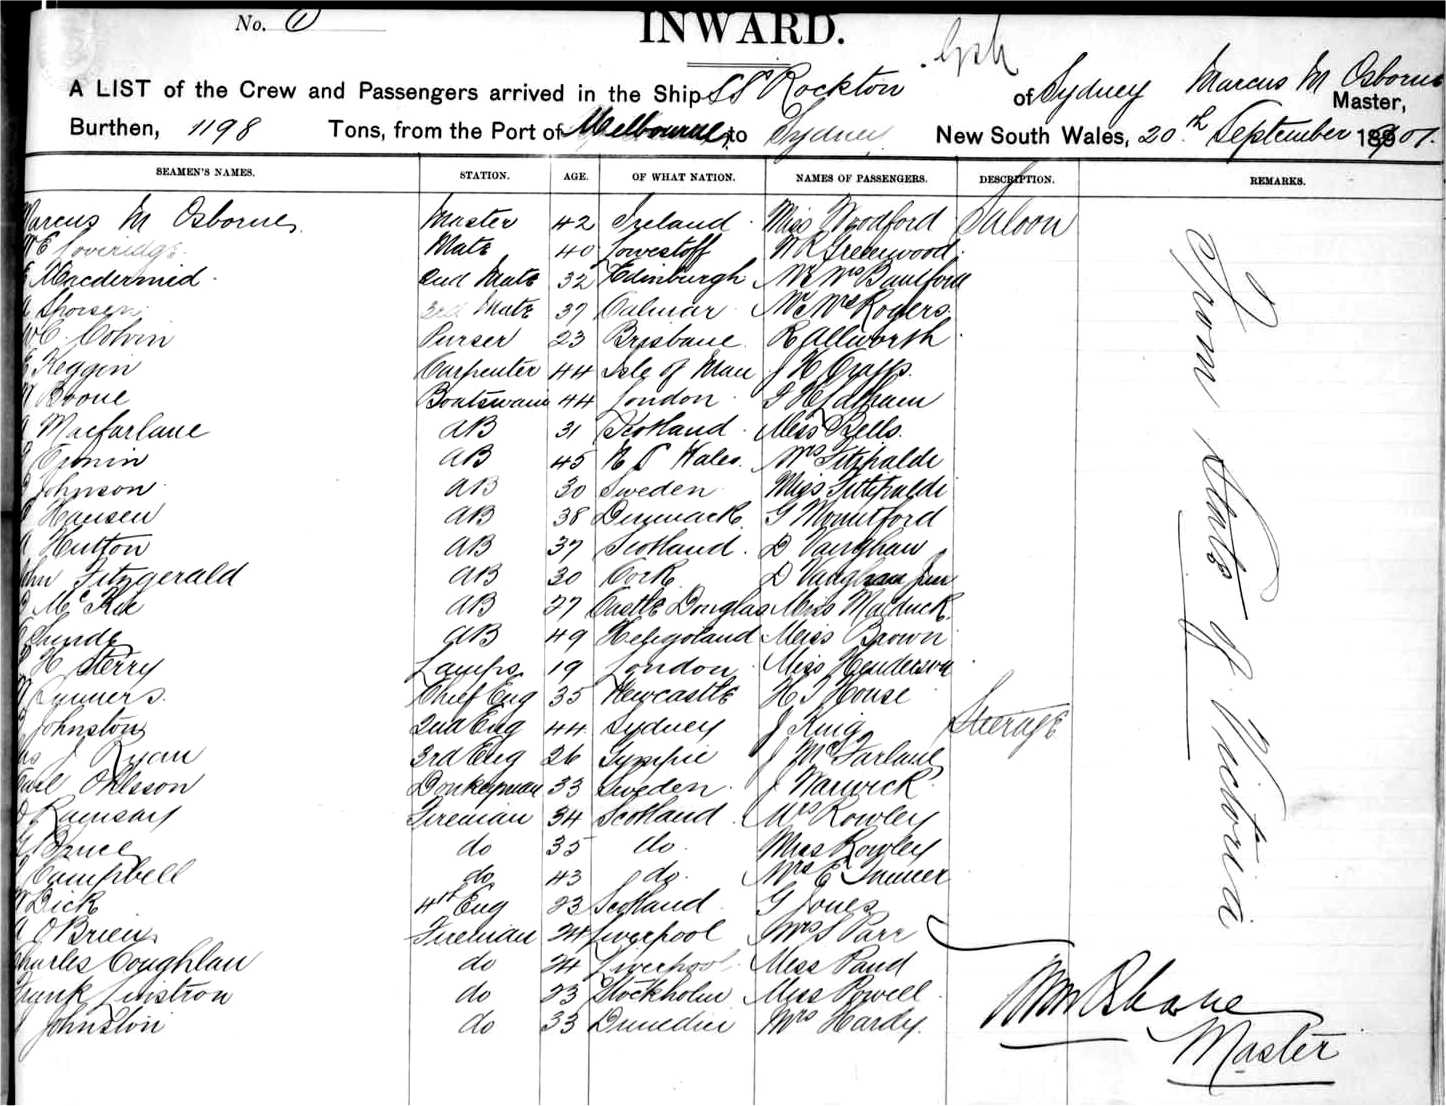 No. 1
INWARD.
A LIST of the Crew and Passengers arrived in the Ship SS Rockton of Sydney Marcus M Osborne Master,
Burthen, 1198 Tons, from the Port of Melbourne, to Sydney New South Wales, 20th September 1901.
SEAMEN'S NAMES. STATION. AGE. OF WHAT NATION. NAMES OF PASSENGERS. DESCRIPTION. REMARKS.
Marcus M Osborne Master 42 Ireland Miss Woodford Saloon
W E Loveridge Mate 40 Lowestoff W R Greenwood
Macdermid 2nd Mate 32 Edinburgh Mr Mrs
3rd Mate 37 Calmar Mr Mrs Rogers
W C Colvin Purser 23 Brisbane R Allworth
E Keggin Carpenter 44 Isle of Man J H Crapp
Boone Boatswain 44 London G H
Macfarlane AB 31 Scotland Miss Bells
Cronin AB 45 N S Wales Mrs Fitzpaldi
Johnson AB 30 Sweden Miss Fitzpaldi
Hansen AB 38 Denmark G Mountford
Hutton AB 37 Scotland D Vaughan
John Fitzgerald AB 30 Cork D Vaughan Jun
McKie AB 27 Castle Douglas Miss
Lunde AB 49 Helegoland Miss Brown
H Sterry Lamps 19 London Miss Henderson
Chief Eng 35 Newcastle H J House
Johnston 2nd Eng 44 Sydney J King Steerage
J Ryan 3rd Eng 26 Gympie J McFarlane
Carl Ohlsson Donkeyman 33 Sweden J Warwick
D Ramsay Fireman 34 Scotland Mrs Rowley
Bruce do 35 do Miss Rowley
Campbell do 43 do Mrs E
W Dick 4th Eng 23 Scotland G Jones
O'Brien Fireman 24 Liverpool Mrs S Parr
Charles Coughlan do 24 Liverpool Miss Pand
Frank Linstron do 23 Stockholm Miss Powell
Johnston do 33 Dunedin Mrs Hardy
From Ports of Victoria
MM Osborne
Master